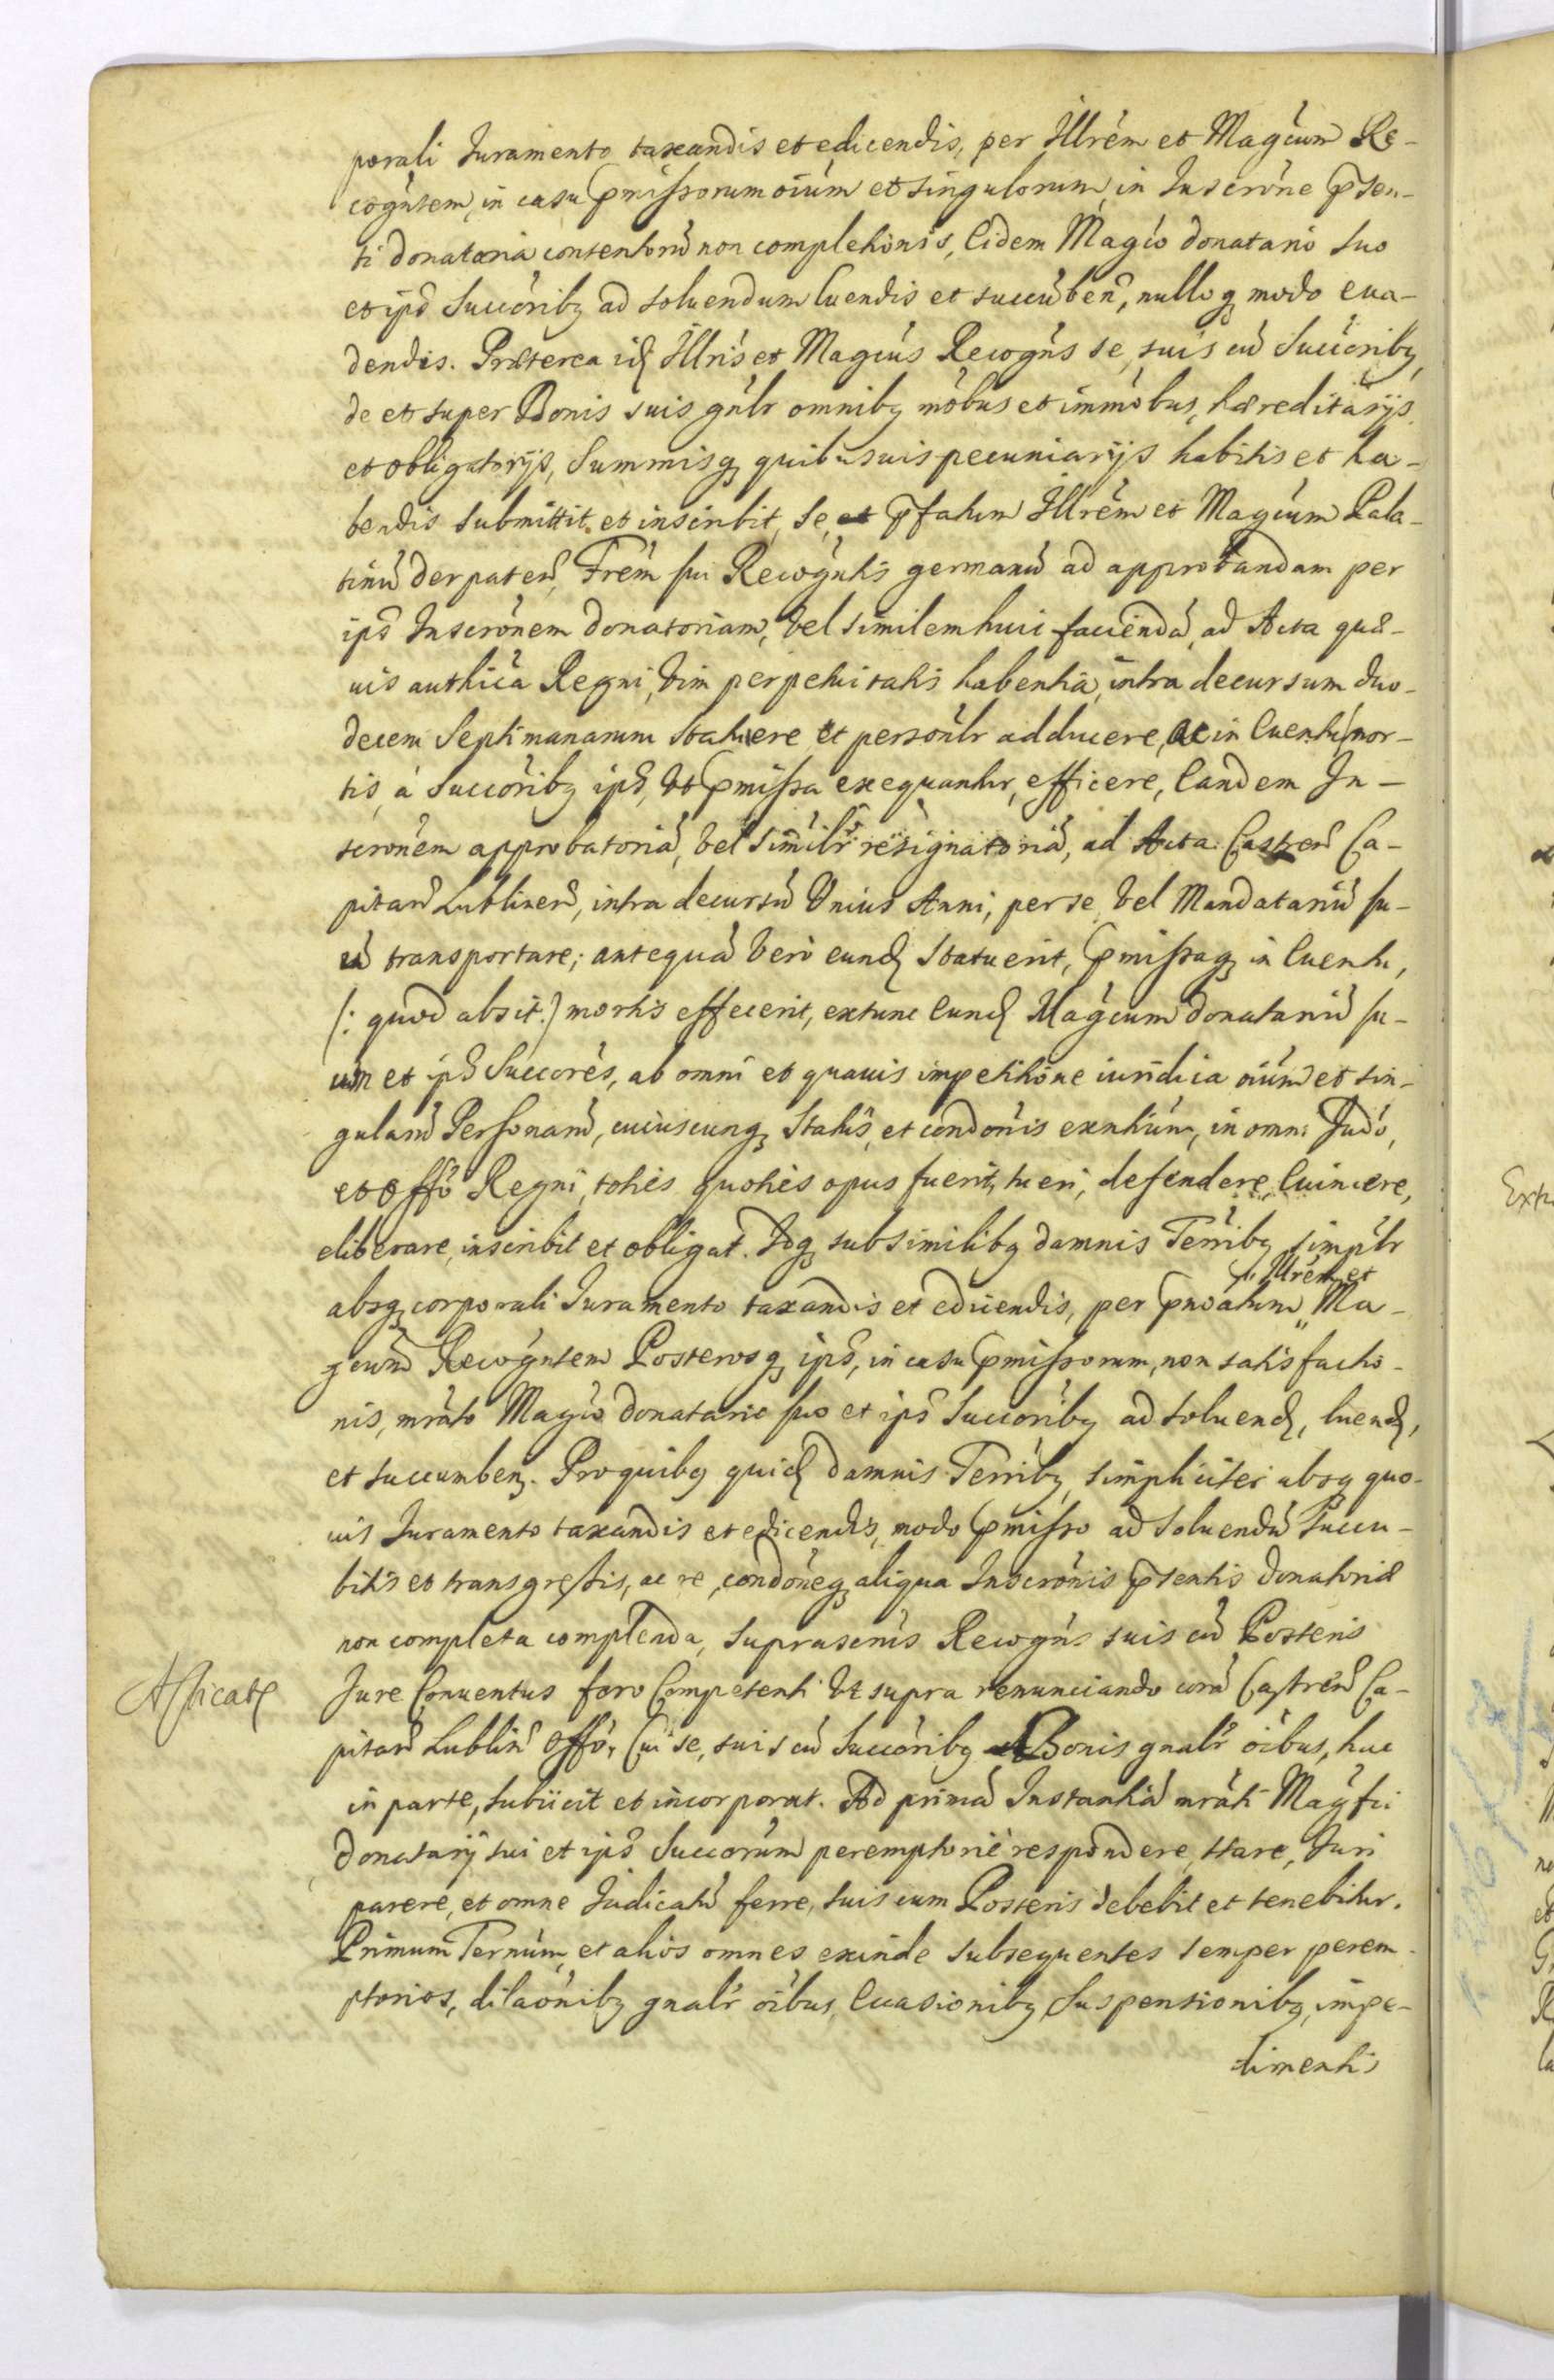 porali Juramento taxandis et edicendis, per Illrém et Magcum Re-
cogntem, in casu pmissorum oium et singulorum, in Inscrone pñsen-
ti donatoria contentorũ non completionis, Eidem Magco donatario suo
et ips Succoribq ad soluendum luendis et succũben, nulloq modo eua-
dendis. Præterea idq Illris et Magcus Recogns se, suis cũ Succoribq,
de et super Bonis suis gnlr omnibq mobus et immobus, hæreditarijs
et obligatorijs, Summisq quibusuis pecuniarijs habitis et ha-
bendis submittit et inscribit, se, pfatum Illrem et Magcum Pala-
tinũ derpaten, Frem sui Recogntis germanũ ad approbandam per
ips Inscronem donatoriam, vel similem huic faciendã, ad Acta quæ-
uis authica Regni, vim perpetuitatis habentia, intra decursum duo-
decem Septimanarum Statuere et personlr adducere, ac in Euentu mor-
tis, à Succoribq ips, vt pmissa exequantur, efficere, Eandem In-
scronem approbatoriã, vel similr resignatoriã, ad Acta Castren Ca-
pitan Lublinen, intra decursũ Vnius Anni, per se, vel Mandatariũ su-
ũ transportare; antequã vero eundq Statuerit, pmissaq in Euentu,
(: quod absit:) mortis effecerit, extunc Eundq Magcum donatariũ su-
um et ips Succores, ab omni et quauis impetitione iuridica oium et sin-
gularũ Personarũ, cuiuscunq Status, et condonis exntium, in omni Judo,
et Offo Regni, toties quoties opus fuerit, tueri, defendere, Euincere,
eliberare, inscribit et obligat. Idq sub similibq damnis Terribq simplr
absq corporali Juramento taxandis et edicendis, per pnoatum „ Ma-
„ Illrem et
gcum Recogntem Posterosq ips, in casu pmissorum, non satisfactio-
nis, mrato Magco donatario suo et ips Succoribq ad soluendq, luendq,
et succumbenq. Pro quibq quidq damnis Terribq, simpliciter absq quo-
uis Juramento taxandis et edicendis, modo pmisso ad soluendũ succu-
bitis et transgressis, ac re, condoneq aliqua Inscronis pñsentis donatoriæ
non completa complenda, suprascris Recogns suis cũ Posteris
Afficatq
Jure Conuentus foro Competenti vt supra renunciando corã Castren Ca-
pitan Lublin Offo, Cui se, suis cũ Succoribq et Bonis gnalr oibus, hac
in parte, subiicit et incorporat. Ad primã Instantiã mrati Magfci
donatarij sui et ips Succorum peremptorie respondere, stare, Juri
parere, et omne Judicatũ ferre, suis cum Posteris debebit et tenebitur.
Primum Ternum, et alios omnes exinde subsequentes semper perem-
ptorios, dilaonibq gnalr oibus, Euasionibq, Suspensionibq, impe-
dimentis